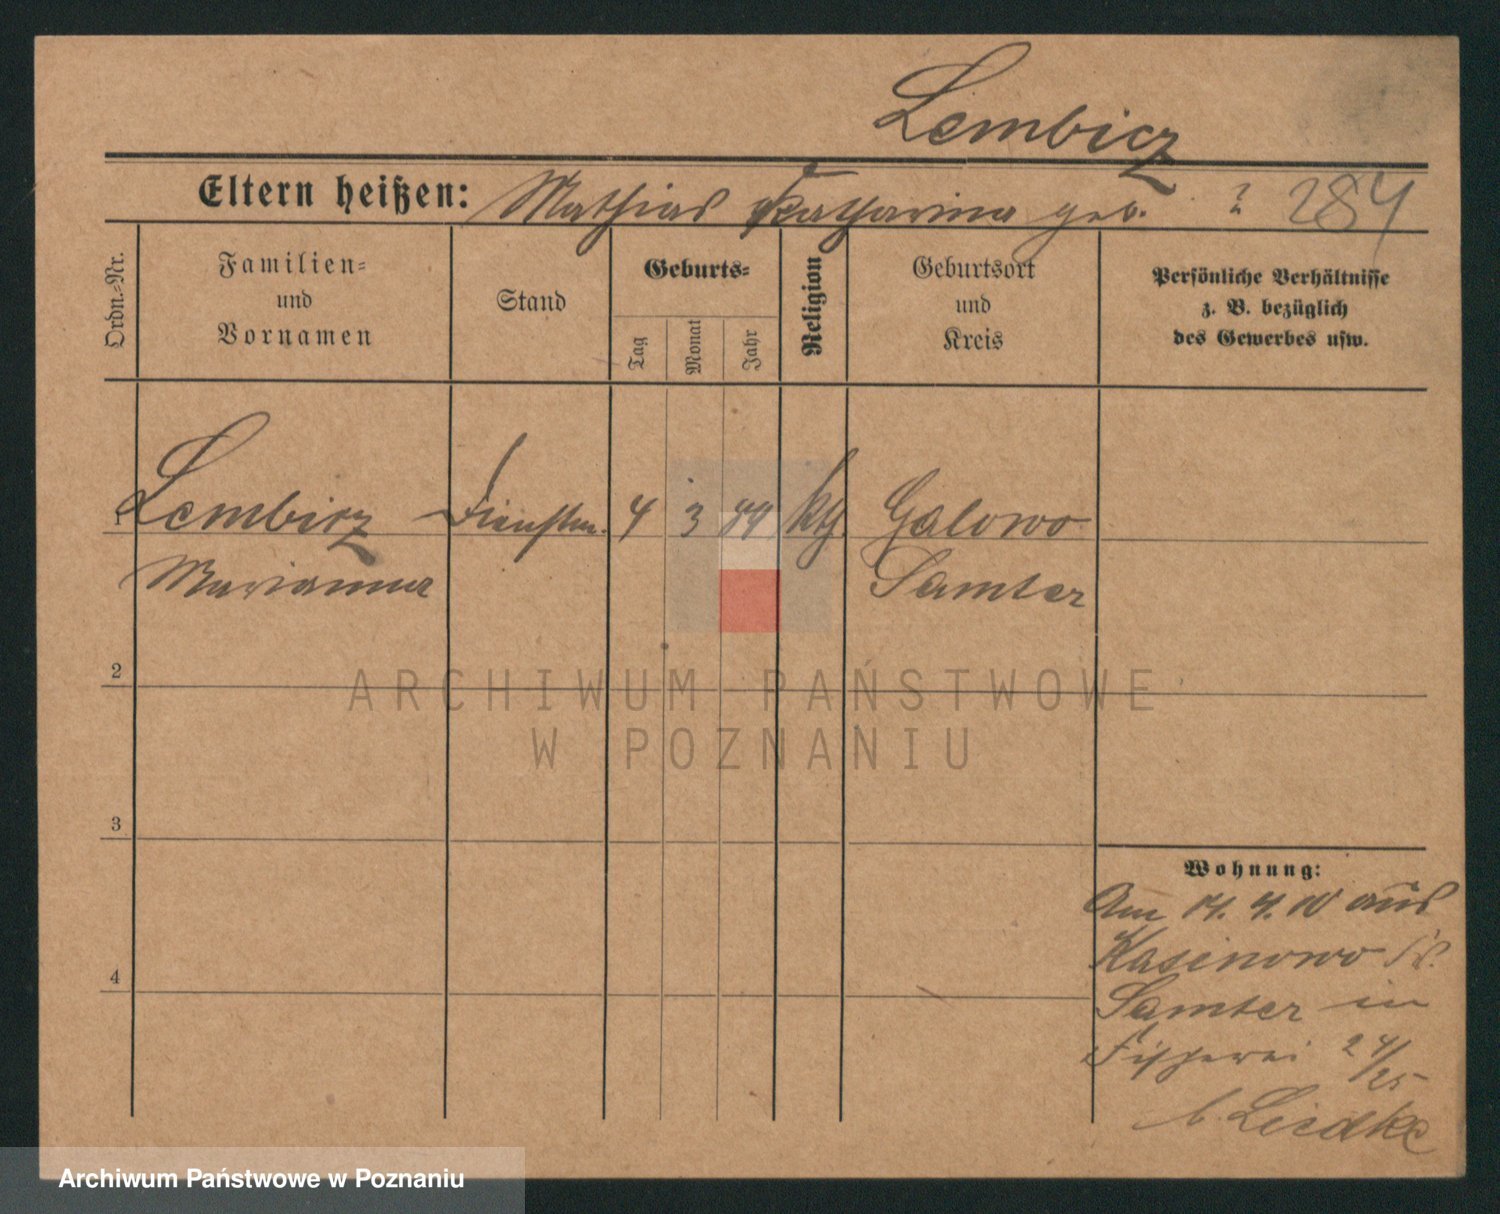 Lembicz
Eltern heißen: Mathias Katharina geb. ? 284
Ordn.-Nr.
Familien-
und
Vornamen
Stand
Geburts-
Tag
Monat
Jahr
Religion
Geburtsort
und
Kreis
Persönliche Verhältnisse
z. B. bezüglich
des Gewerbes usw.
1 Lembicz Dienstm. 4 3 84 kg. Galowo
Marianna Samter
2
ARCHIWUM PAŃSTWOWE
W POZNANIU
3
Wohnung:
Am 14. 4. 10 aus
Kasinowo
4
Samter in
Fischerei 24/25
b. Liedke
Archiwum Państwowe w Poznaniu